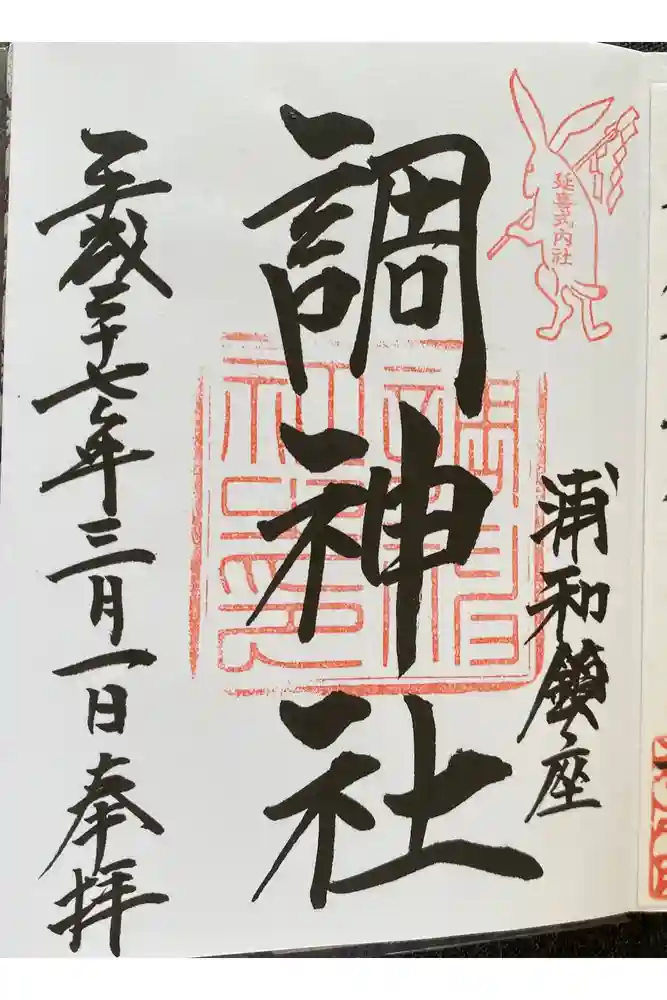 延喜式内社
浦和鎮座
調神社
平成二十七年三月一日奉拝